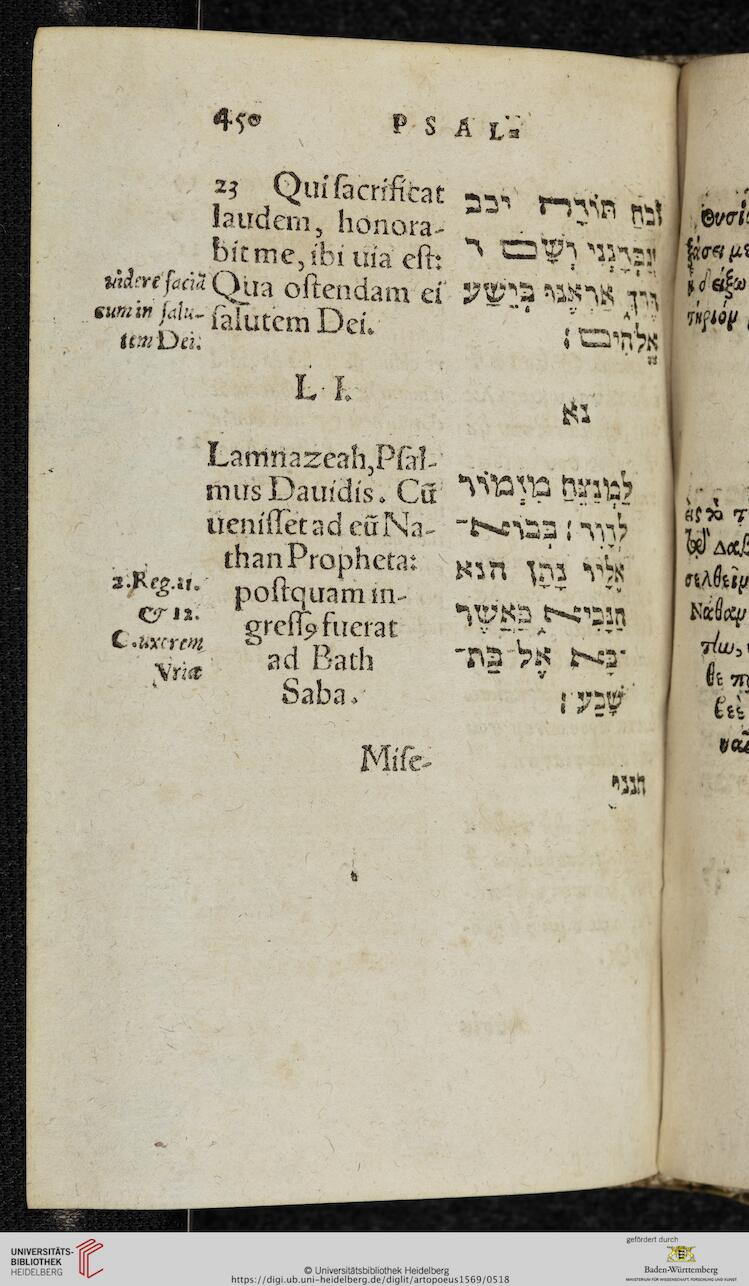 450
PSAL:
23 Qui sacrificat
laudem, honora-
bit me, ibi uia est:
Qua ostendam ei
salutem Dei.
uidere faciā
eum in salu-
tem Dei:
זֹבֵחַ תּוֹדָה יכב
יְכַבְּדָנְנִי וְשָׂם
דֶּרֶךְ אַרְאֶנּוּ בְּיֵשַׁע
אֱלֹהִים׃
LI.
נא
Lamnazeah, Psal-
mus Dauidis. Cū
uenisset ad eū Na-
than Propheta:
postquam in-
gressꝰ fuerat
ad Bath
Saba.
2.Reg.11.
& 12.
C. uxorem
Vriæ
לַמְנַצֵּחַ מִזְמוֹר
לְדָוִד׃ בְּבוֹא־
אֵלָיו נָתָן הנא
הַנָּבִיא כַּאֲשֶׁר
בָּא אֶל־בַּת־
שָׁבַע׃
Mise-
חנני
Θυσί
τήριόμ
εἰς τὸ τ
σελθεῖμ
Νάθαμ
UNIVERSITÄTS-
BIBLIOTHEK
HEIDELBERG
© Universitätsbibliothek Heidelberg
https://digi.ub.uni-heidelberg.de/diglit/artopoeus1569/0518
gefördert durch
Baden-Württemberg
MINISTERIUM FÜR WISSENSCHAFT, FORSCHUNG UND KUNST